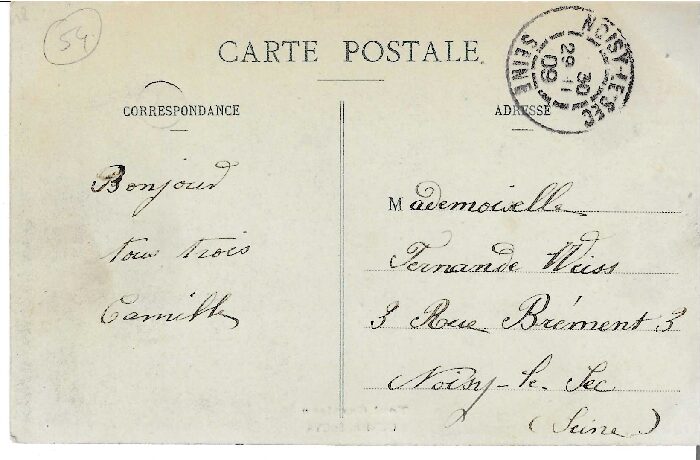 54
CARTE POSTALE
NOISY-LE-SEC
30
29-11
09
SEINE
CORRESPONDANCE
ADRESSE
Bonjour
tous trois
Camille
Mademoiselle
Fernande Weiss
3 Rue Brément 3
Noisy-le-Sec
(Seine)